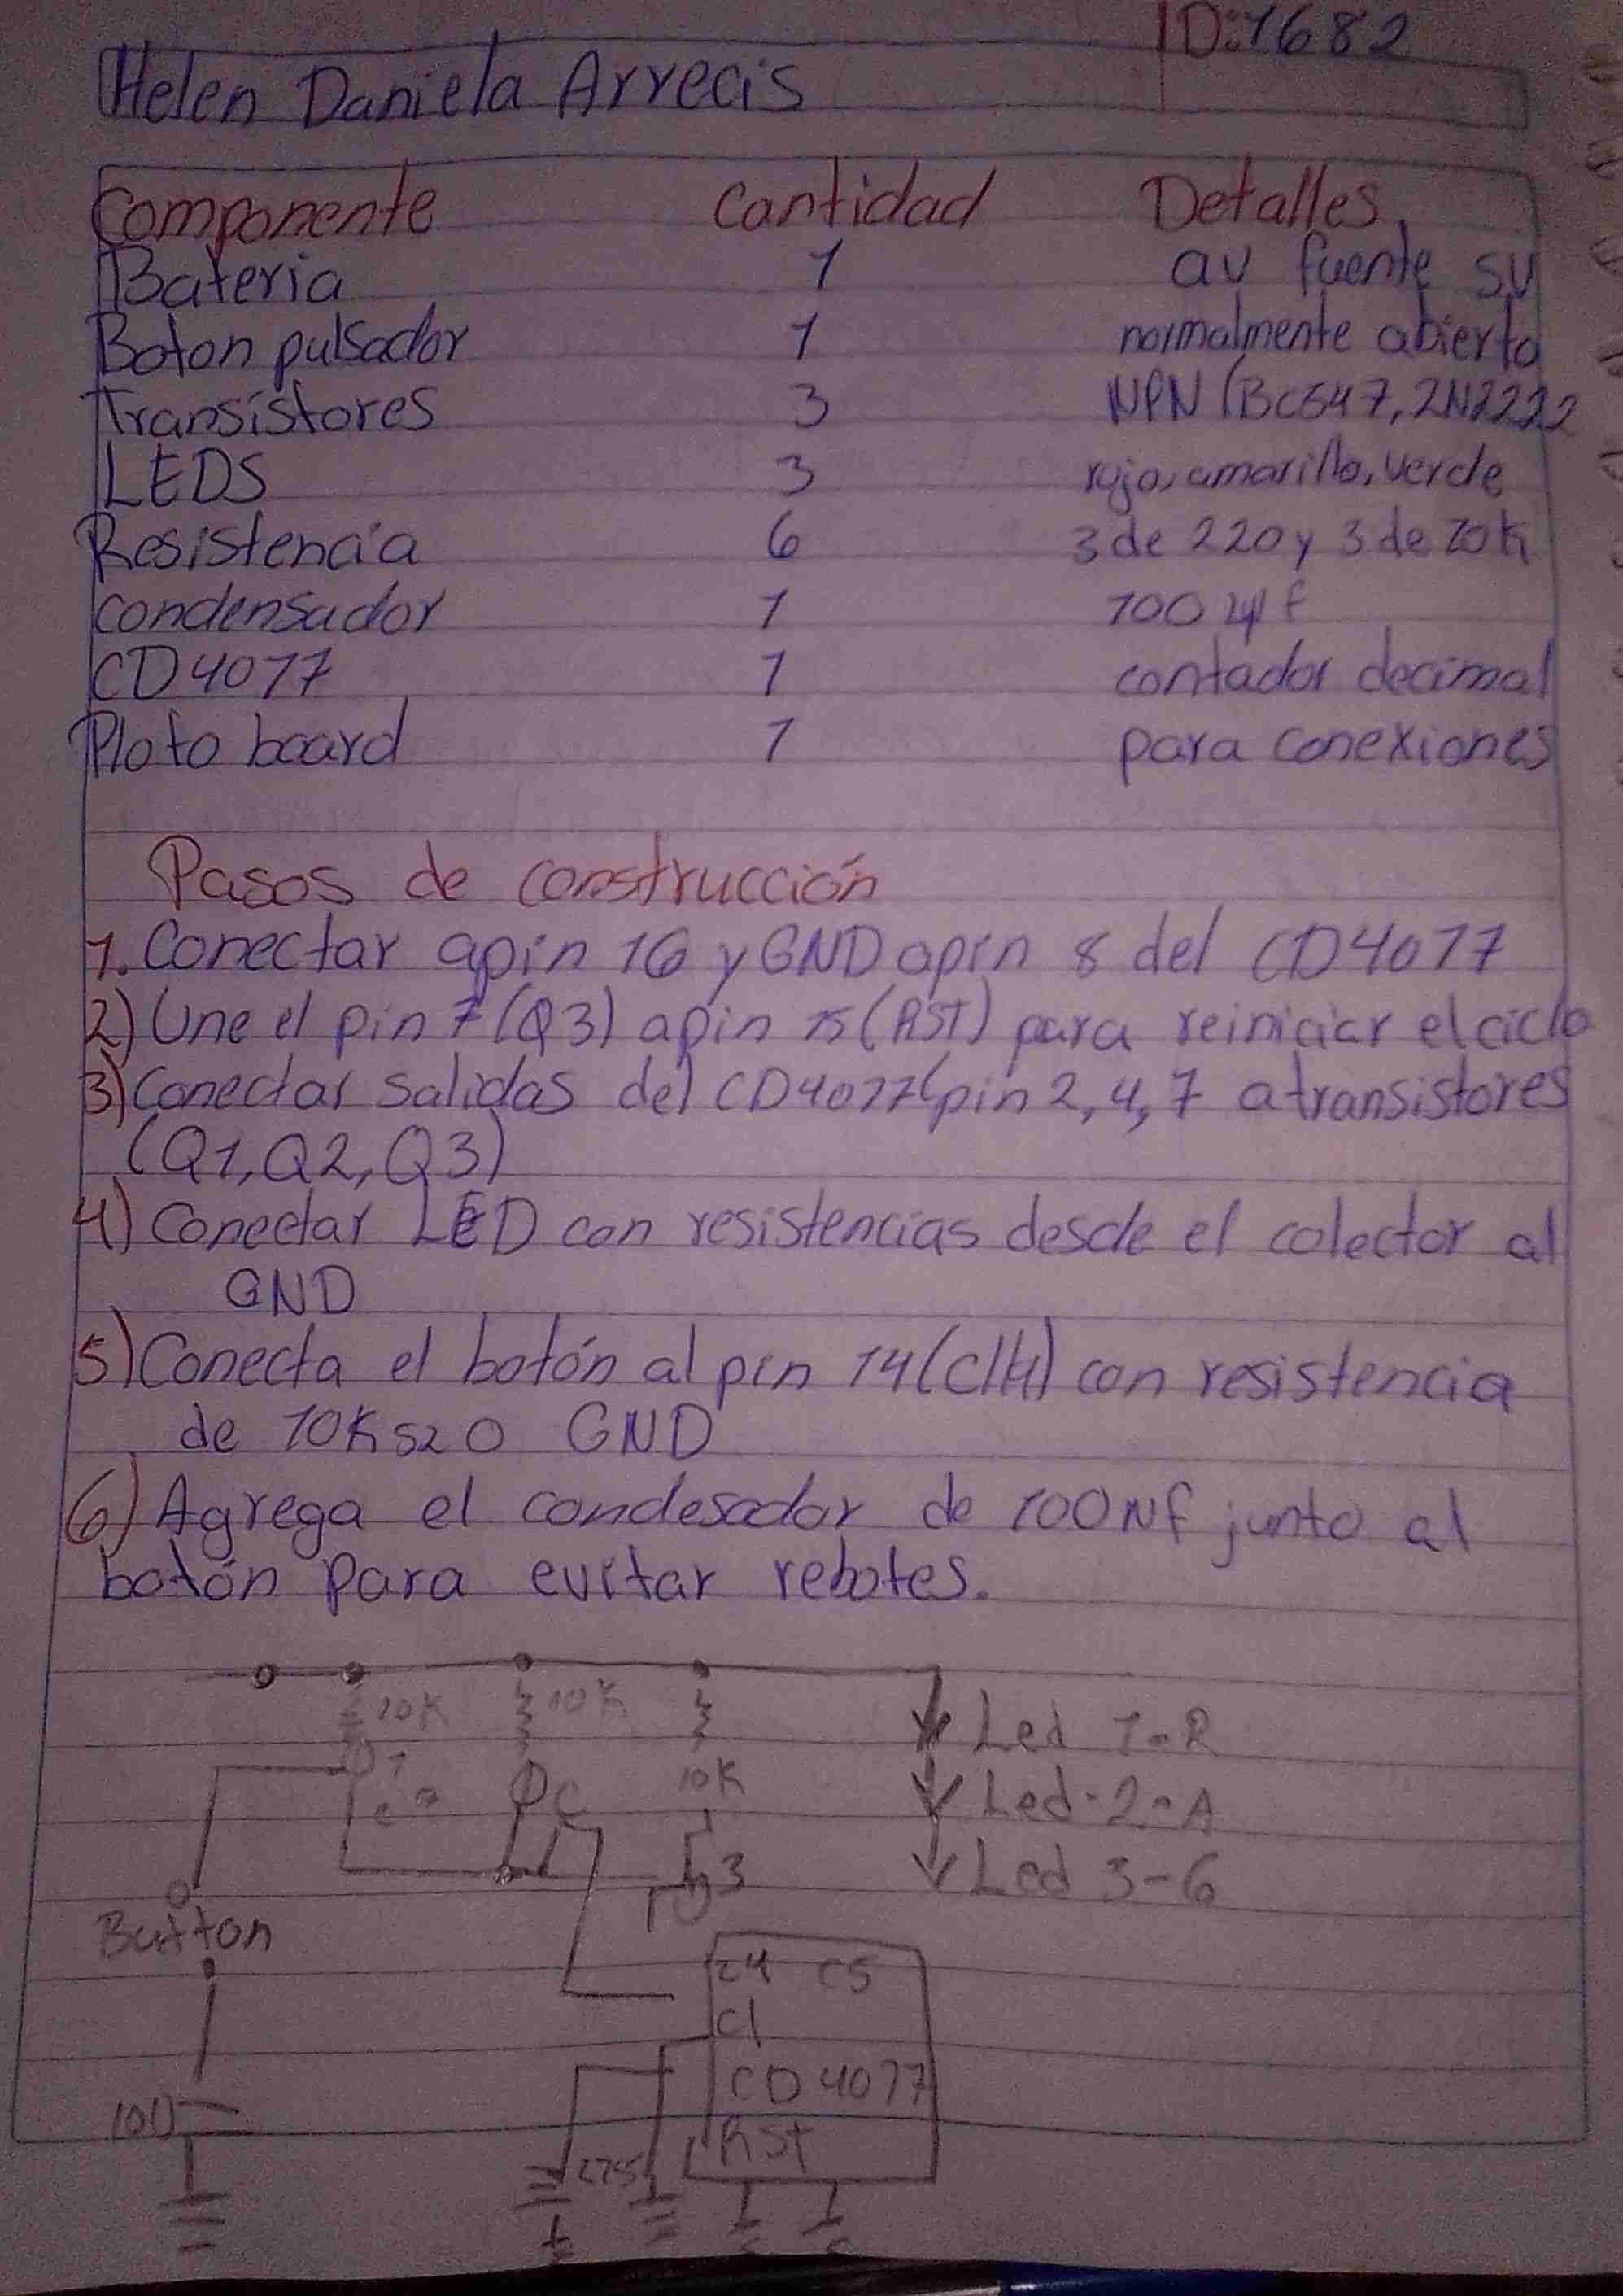 ID:1682
Helen Daniela Arrecis
Componente Cantidad Detalles
Bateria 1 av fuente sv
Boton pulsador 1 normalmente abierto
Transistores 3 NPN (BC547, 2N2222
LEDS 3 rojo, amarillo, verde
Resistencia 6 3 de 220 y 3 de 10k
condensador 1 100 f
CD4017 1 contador decimal
Ploto board 1 para conexiones
Pasos de construcción
1. Conectar apin 16 y GND apin 8 del CD4017
2) Une el pin 7 (Q3) apin 15 (RST) para reiniciar el ciclo
3) Conectar salidas del CD4017 (pin 2, 4, 7 a transistores
(Q1, Q2, Q3)
4) Conectar LED con resistencias desde el colector al
GND
5) Conecta el botón al pin 14 (clk) con resistencia
de 10K GND
6) Agrega el condesador de 100Nf junto al
botón para evitar rebotes.
10K 10K Led 1-R
10K Led-2-A
3 Led 3-G
Button
CD4017
100 Rst